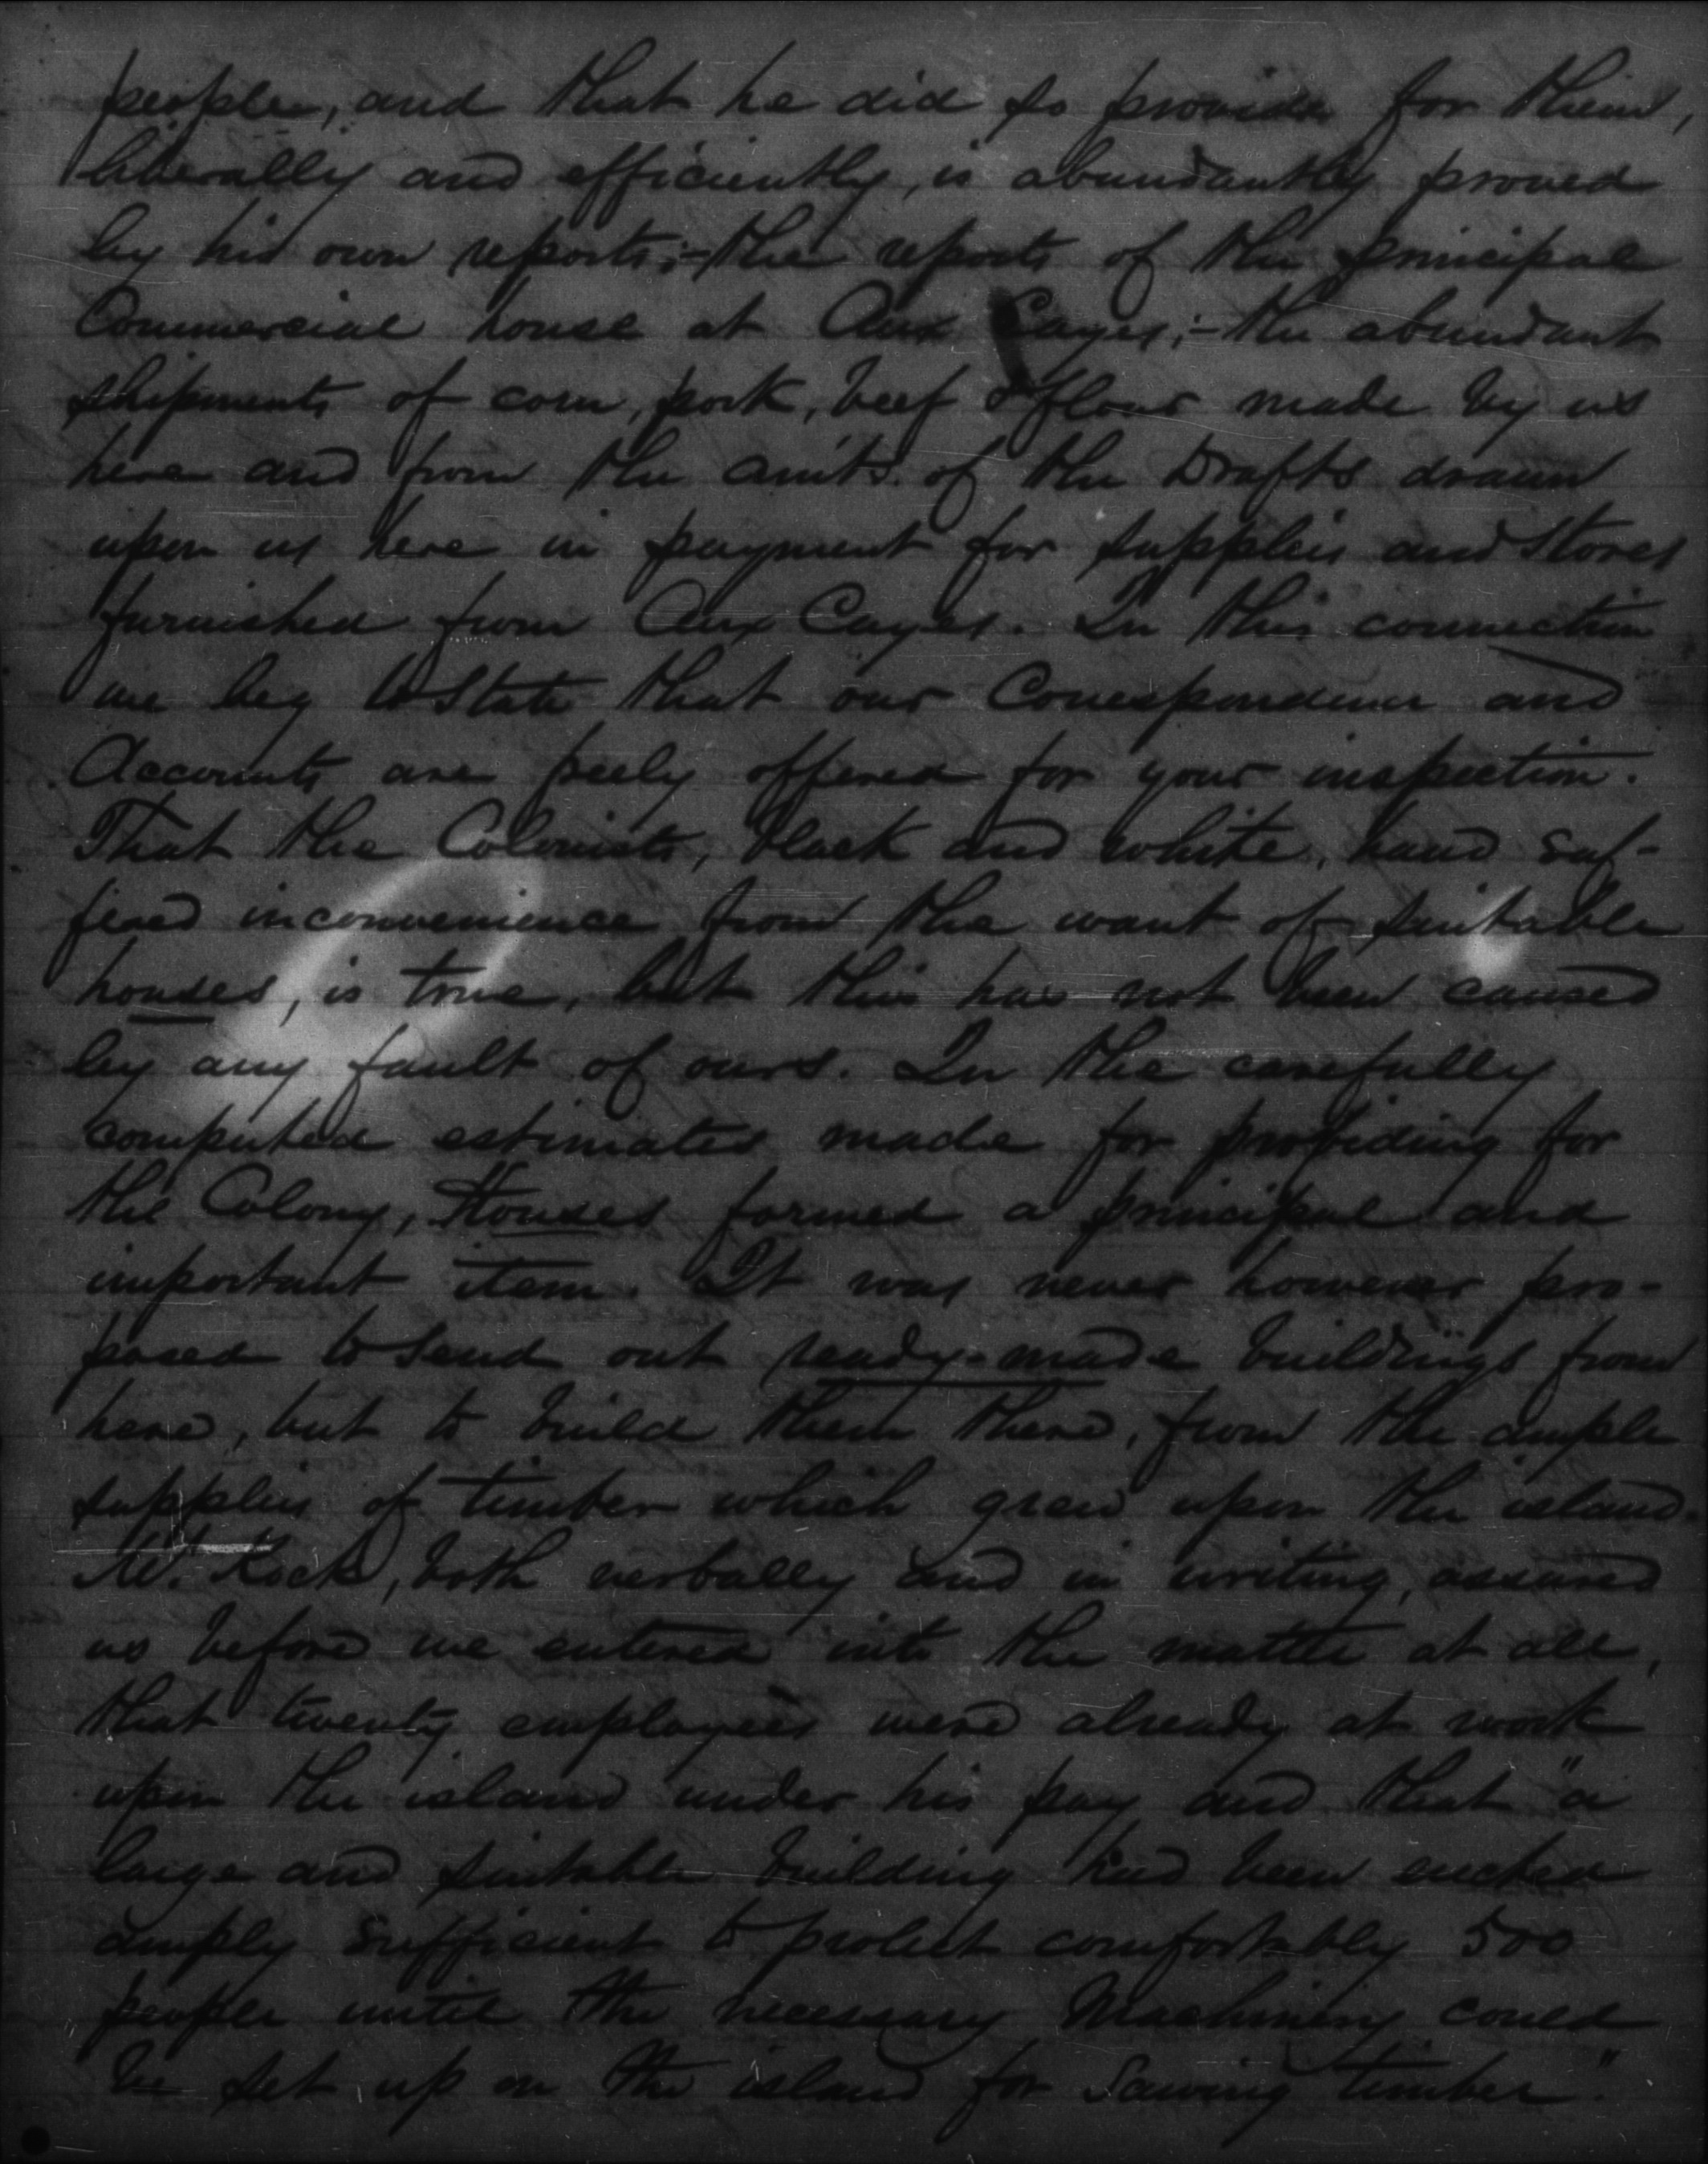 people, and that he did so provide for them,
liberally and efficiently, is abundantly proved
by his own reports;- the reports of the principal
Commercial house at Aux Cayes;- the abundant
shipments of corn, pork, beef & flour made by us
here and from the am'ts. of the Drafts drawn
upon us here in payment for supplies and stores
furnished from Aux Cayes. In this connection
we beg to state that our Correspondence and
Accounts are freely offered for your inspection.
That the Colonists, black and white, have suf-
fered inconvenience from the want of suitable
houses, is true, but this has not been caused
by any fault of ours. In the carefully
computed estimates made for providing for
the Colony, Houses formed a principal and
important item. It was never however pro-
posed to send out ready-made buildings from
here, but to build them there, from the ample
supplies of timber which grew upon the island.
Mr. Kock, both verbally and in writing, assured
us before we entered into the matter at all,
that twenty employees were already at work
upon the island under his pay and that "a
large and suitable building had been erected
amply sufficient to protect comfortably 500
people until the necessary Machinery could
be set up on the island for sawing timber."